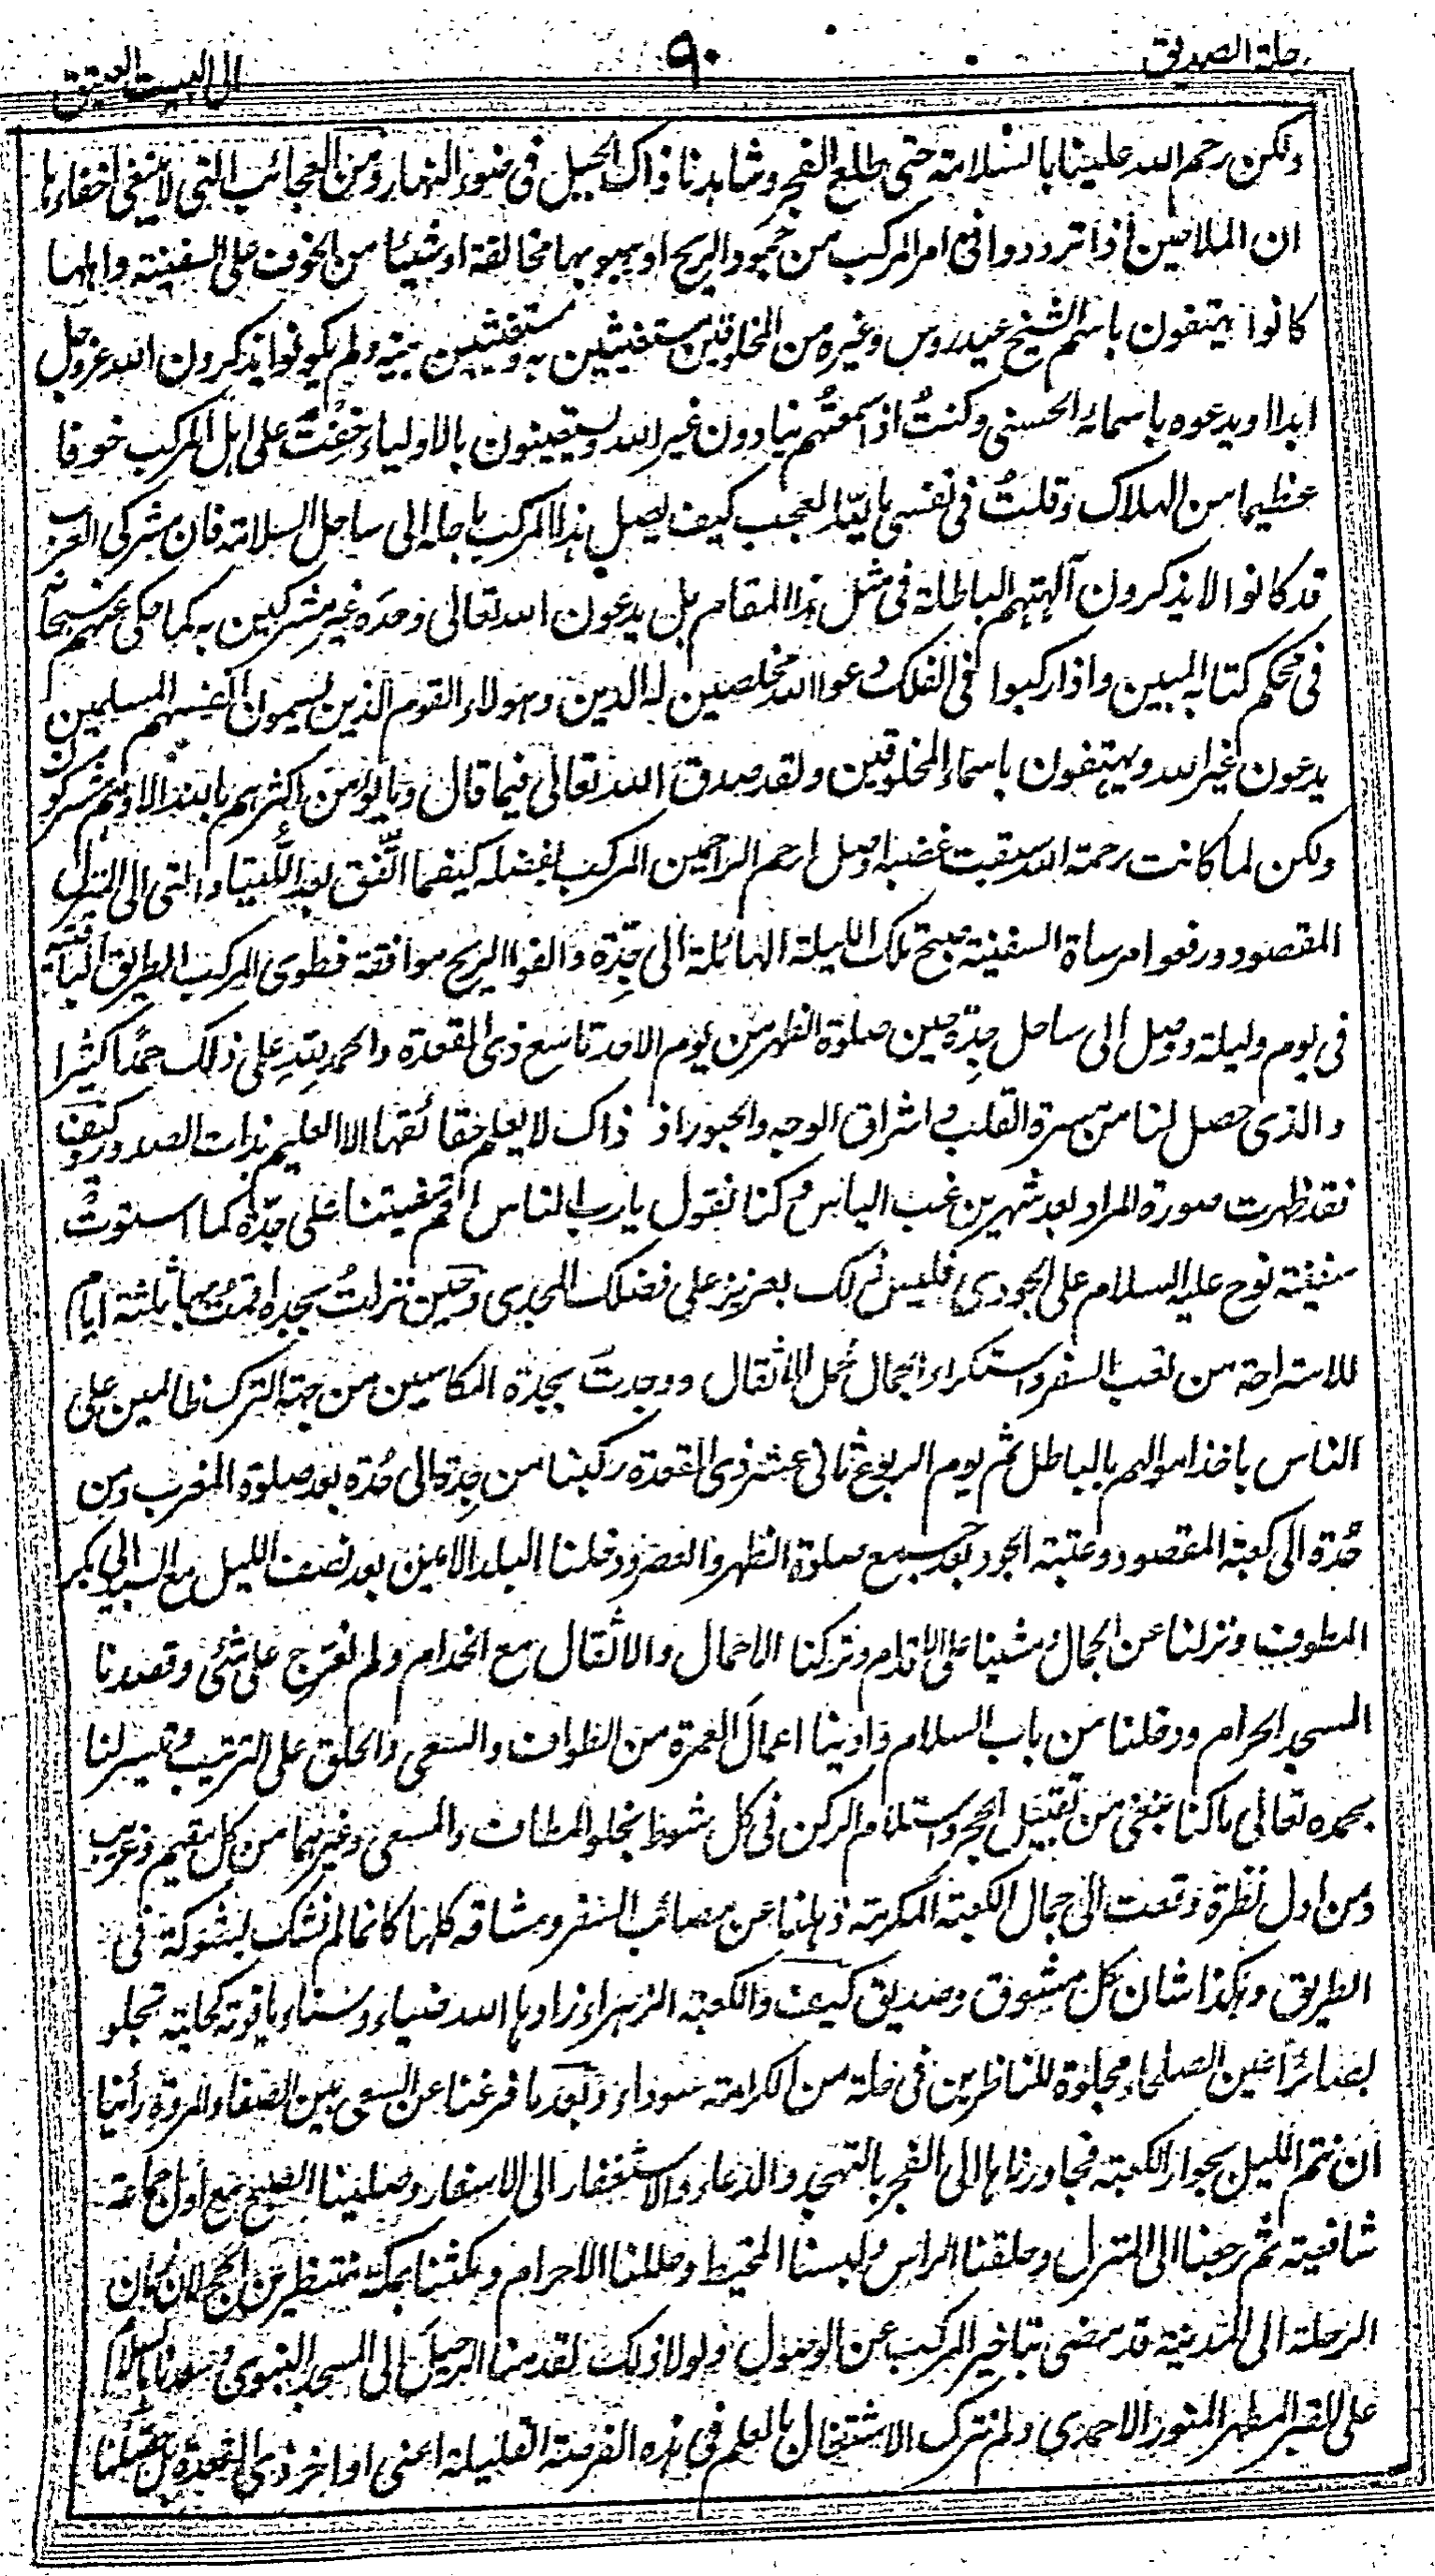 رحلة الصديق
٩٠
الى البيت العتيق
ولكن رحم الله علينا بالسلامة حتى طلع الفجر وشاهدنا ذاك الجبل فى ضوء النهار ومن العجائب التى لا ينبغى اخفاءها
ان الملاحين اذا ترددوا فى امر المركب من جمود الريح او هبوبها مخالفة او شيئا من الخوف على السفينة واهلها
كانوا يهتفون باسم الشيخ عيدروس وغيره من المخلوقين مستغيثين به ومستغيثين بنيه ولم يكونوا يذكرون الله عز وجل
ابدا او يدعوه باسمائه الحسنى وكنتُ اذا سمعتُهم ينادون غير الله ويستعينون بالاولياء خِفْتُ على اهل المركب خوفا
عظيما من الهلاك وقلتُ فى نفسى يا لله العجب كيف يصل هذا المركب باهله الى ساحل السلامة فان مشركى العرب
قد كانوا لا يذكرون آلهتهم الباطلة فى مثل هذا المقام بل يدعون الله تعالى وحده غير مشركين به كما حكى عنهم سبحانه
فى محكم كتابه المبين واذا ركبوا فى الفلك دعوا الله مخلصين له الدين وهولاء القوم الذين يسمون انفسهم المسلمين
يدعون غير الله ويهتفون باسماء المخلوقين ولقد صدق الله تعالى فيما قال وما يؤمن اكثرهم بالله الا وهم مشركون
ولكن لما كانت رحمة الله سبقت غضبه اوصل ارحم الراحمين المركب بفضله كيفما اتّفق بعد اللَّتيا والتى الى المنزل
المقصود ورفعوا مرساة السفينة صبح تلك الليلة الهائلة الى جِدّة والفوا الريح موافقة فطوى المركب الطريق الباقية
فى يوم وليلة ووصل الى ساحل جِدّة حين صلوة الظهر من يوم الاحد تاسع ذى القعدة والحمد لله على ذلك حمدًا كثيرا
والذى حصل لنا من مسرة القلب واشراق الوجه والحبور اذ ذاك لا يعلم حقائقها الا العليم بذات الصدور وكيف
فقد ظهرت صورة المراد بعد شهرين غب الياس وكنا نقول يا رب الناس اقم سفينتنا على جِدّة كما استوتْ
سفينة نوح عليه السلام على الجودى فليس ذلك بعزيز على فضلك المجدى وحين نزلتُ بجدة اقمتُ بها ثلثة ايام
للاستراحة من تعب السفر واستكراء الجمال لحمل الاثقال ووجدتُ بجدة المكاسين من جهة الترك ظالمين على
الناس باخذ اموالهم بالباطل ثم يوم الربوع ثانى عشر ذى القعدة ركبنا من جِدة الى حُدّه بعد صلوة المغرب ومن
حُدة الى كعبة المقصود وعتبة الجود بعد جمع صلوة الظهر والعصر ودخلنا البلد الامين بعد نصف الليل مع السيد ابى بكر
المطوف ونزلنا عن الجمال ومشينا على الاقدام وتركنا الاحمال والاثقال مع الخدام ولم نعرج على شئ وقصدنا
المسجد الحرام ودخلنا من باب السلام وادينا اعمال العمرة من الطواف والسعى والحلق على الترتيب وتيسر لنا
بحمده تعالى ما كنا نبتغى من تقبيل الحجر واستلام الركن فى كل شوط بخلو المطاف والمسعى وغيرهما من كل مقيم وغريب
ومن اول نظرة وقعت الى جمال الكعبة المكرمة ذهلنا عن مصائب السفر ومشاقه كلها كانما لم نشك بشوكة فى
الطريق وهكذا شان كل مشوق وصديق كيف والكعبة الزهراء زادها الله ضياء وسناء ياقوتة كحلية تجلو
بصائر اعين الصلحاء ومجلوة للناظرين فى حلة من الكرامة سوداء وبعد ما فرغنا عن السعى بين الصفا والمروة رأينا
ان نتم الليل بجوار الكعبة فجاورناها الى الفجر بالتهجد والدعاء والاستغفار الى الاسفار وصلينا الصبح مع اول جماعة
شافعية ثم رجعنا الى المنزل وحلقنا الراس ولبسنا المخيط وحللنا الاحرام ومكثنا بمكة منتظرين الحج لان زمان
الرحلة الى المدينة قد مضى بتاخير المركب عن الوصول ولولا ذلك لقدمنا الرحيل الى المسجد النبوى وسعدنا بالسلام
على القبر المطهر المنور الاحمدى ولم نترك الاشتغال بالعلم فى هذه الفرصة القليلة اعنى اواخر ذى القعدة بل